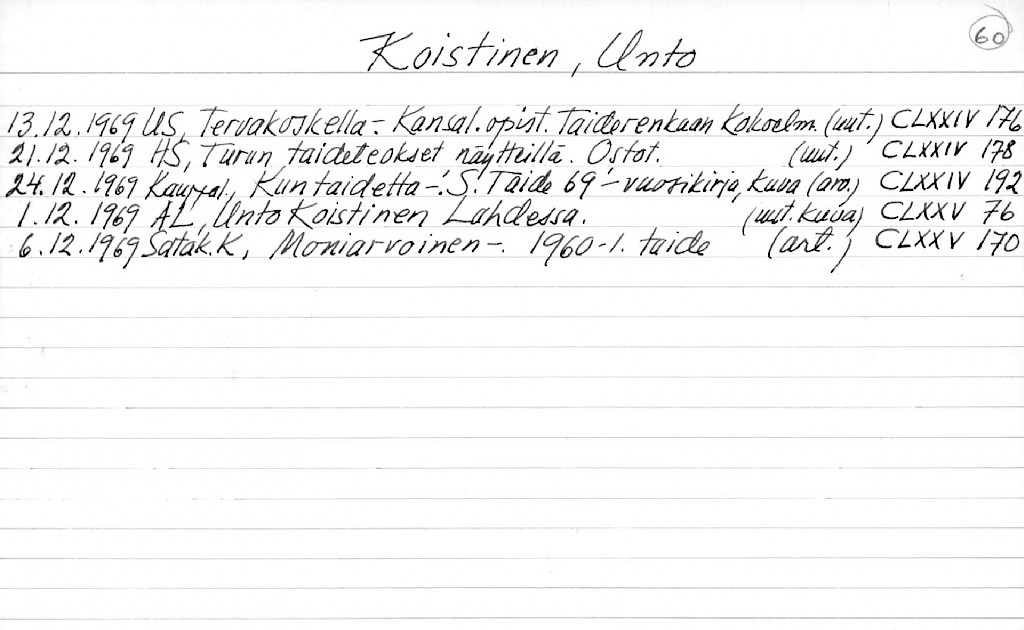 60
Koistinen, Unto
13.12.1969 US, Tervakoskella - Kansal. opist. Taiderenkaan Kokoelm. (uut.) CLXXIV 176
21.12.1969 HS, Turun taideteokset näytteillä. Ostot. (uut.) CLXXIV 178
24.12.1969 Kauppal., Kun taidetta -. S. Taide 69 - vuosikirja, kuva (arv.) CLXXIV 192
1.12.1969 AL, Unto Koistinen Lahdessa. (uut. kuva) CLXXV 76
6.12.1969 Satak. K, Moniarvoinen -. 1960-l. taide (art.) CLXXV 170